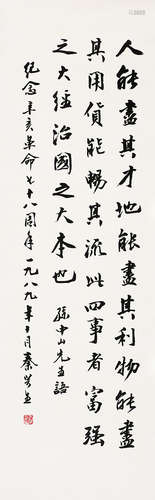 人能盡其才地能盡其利物能盡
其用貨能暢其流此四事者富强
之大經治國之大本也 孫中山先生語
紀念辛亥革命七十八周年一九八九年十月秦